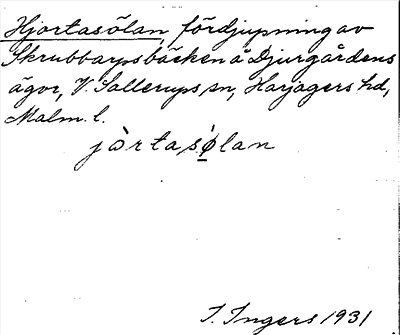 Hjortasölan, fördjupning av
Skrubbarpsbäcken å Djurgårdens
ägor, V. Sallerups sn, Harjagers hd,
Malm. l.
jòrtasølan
I. Ingers 1931